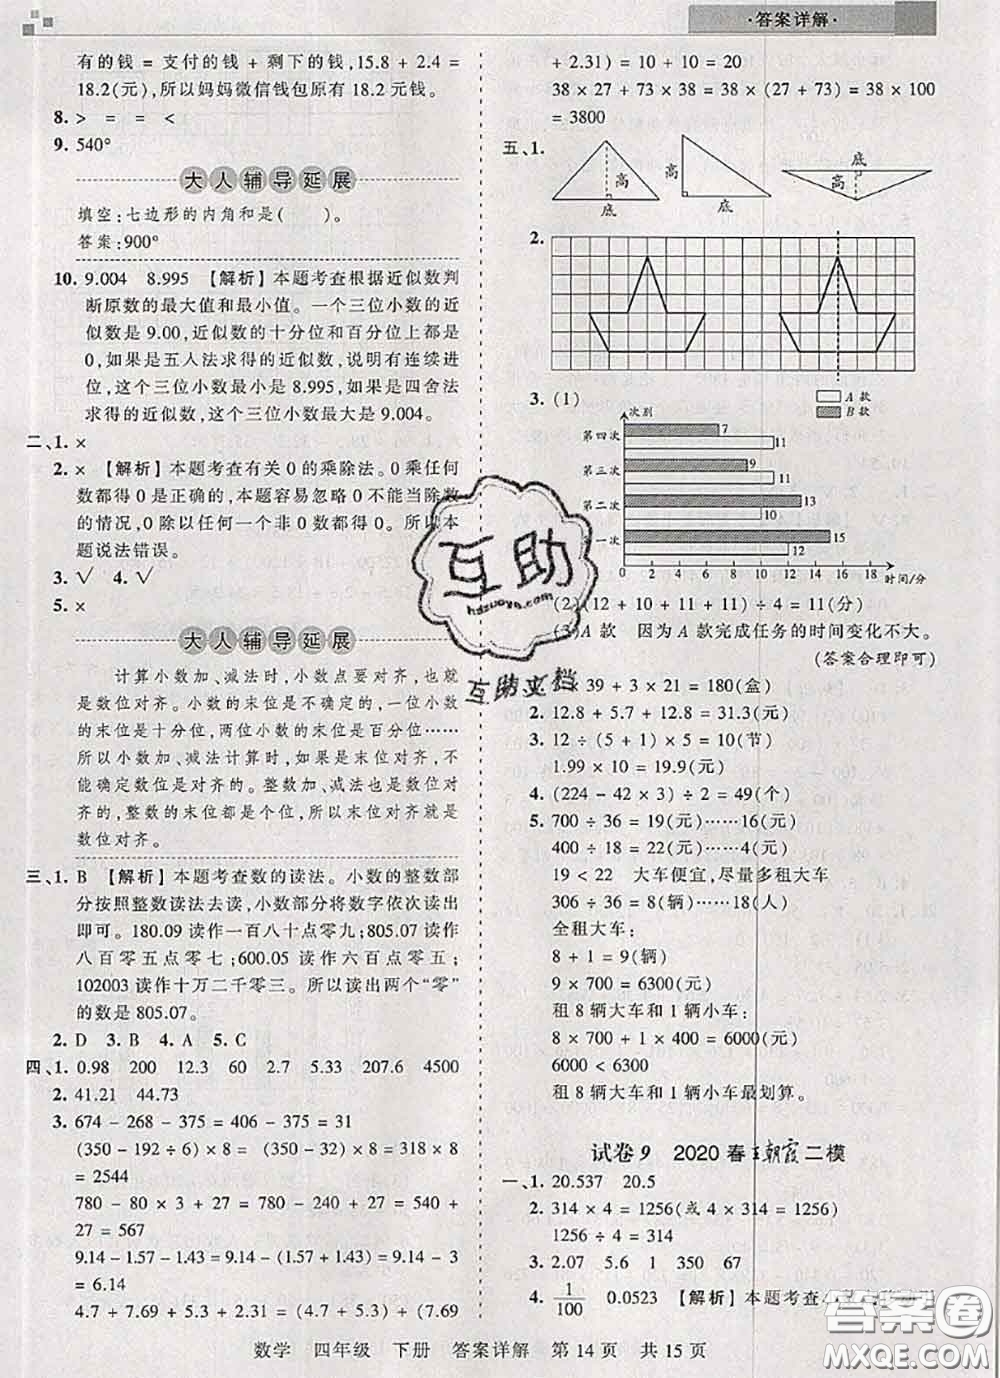 ·答案详解·
有的钱 = 支付的钱 + 剩下的钱,15.8 + 2.4 =
18.2(元),所以妈妈微信钱包原有 18.2 元钱。
8. > = = <
9. 540°
大人辅导延展
填空:七边形的内角和是( )。
答案:900°
10. 9.004 8.995 【解析】本题考查根据近似数判
断原数的最大值和最小值。一个三位小数的近
似数是 9.00,近似数的十分位和百分位上都是
0,如果是五入法求得的近似数,说明有连续进
位,这个三位小数最小是 8.995,如果是四舍法
求得的近似数,这个三位小数最大是 9.004。
二、1. ×
2. × 【解析】本题考查有关 0 的乘除法。0 乘任何
数都得 0 是正确的,本题容易忽略 0 不能当除数
的情况,0 除以任何一个非 0 数都得 0。所以本
题说法错误。
3. √ 4. √
5. ×
大人辅导延展
计算小数加、减法时,小数点要对齐,也就
是数位对齐。小数的末位是不确定的,一位小数
的末位是十分位,两位小数的末位是百分位……
所以小数加、减法计算时,如果是末位对齐,不
能确定数位是对齐的。整数加、减法也是数位对
齐的,整数的末位都是个位,所以末位对齐就是
数位对齐。
三、1. B 【解析】本题考查数的读法。小数的整数部
分按照整数读法去读,小数部分将数字依次读出
即可。180.09 读作一百八十点零九;805.07 读作
八百零五点零七;600.05 读作六百点零五;
102003 读作十万二千零三。所以读出两个“零”
的数是 805.07。
2. D 3. B 4. A 5. C
四、1. 0.98 200 12.3 60 2.7 5.3 207.6 4500
2. 41.21 44.73
3. 674 - 268 - 375 = 406 - 375 = 31
(350 - 192 ÷ 6) × 8 = (350 - 32) × 8 = 318 × 8
= 2544
780 - 80 × 3 + 27 = 780 - 240 + 27 = 540 +
27 = 567
9.14 - 1.57 - 1.43 = 9.14 - (1.57 + 1.43) = 9.14 - 3
= 6.14
4.7 + 7.69 + 5.3 + 2.31 = (4.7 + 5.3) + (7.69
+ 2.31) = 10 + 10 = 20
38 × 27 + 73 × 38 = 38 × (27 + 73) = 38 × 100
= 3800
五、1.
高
底
高
底
底
高
2.
3. (1)
次别
A 款
B 款
第四次
7
11
第三次
9
11
第二次
13
10
一次
15
12
0 2 4 6 8 10 12 14 16 18 时间/分
(2)(12 + 10 + 11 + 11) ÷ 4 = 11(分)
(3)A 款 因为 A 款完成任务的时间变化不大。
(答案合理即可)
× 39 + 3 × 21 = 180(盒)
2. 12.8 + 5.7 + 12.8 = 31.3(元)
3. 12 ÷ (5 + 1) × 5 = 10(节)
1.99 × 10 = 19.9(元)
4. (224 - 42 × 3) ÷ 2 = 49(个)
5. 700 ÷ 36 = 19(元)……16(元)
400 ÷ 18 = 22(元)……4(元)
19 < 22 大车便宜,尽量多租大车
306 ÷ 36 = 8(辆)……18(人)
全租大车:
8 + 1 = 9(辆)
9 × 700 = 6300(元)
租 8 辆大车和 1 辆小车:
8 × 700 + 1 × 400 = 6000(元)
6000 < 6300
租 8 辆大车和 1 辆小车最划算。
试卷 9 2020 春王朝霞二模
一、1. 20.537 20.5
2. 314 × 4 = 1256(或 4 × 314 = 1256)
1256 ÷ 4 = 314
3. 2.07 5.6 1 350 67
4. 1/100 0.0523 【解析】本题考查小
数学 四年级 下册 答案详解 第 14 页 共 15 页
互助
hdzuoye.com
互助文档
答案圈
MXQE.COM